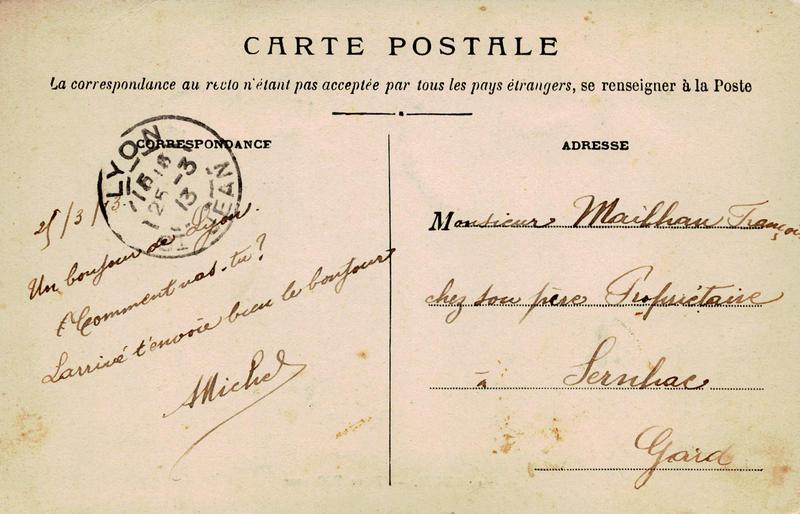 CARTE POSTALE
La correspondance au recto n'étant pas acceptée par tous les pays étrangers, se renseigner à la Poste
CORRESPONDANCE
ADRESSE
LYON
15 15
25 - 3
13
JEAN
25/3/13.
Un bonjour de Lyon.
Comment vas-tu?
Larrivé t'envoie bien le bonjour
AMichel
Monsieur Mailhan François
chez son père Propriétaire
à Sernhac
Gard